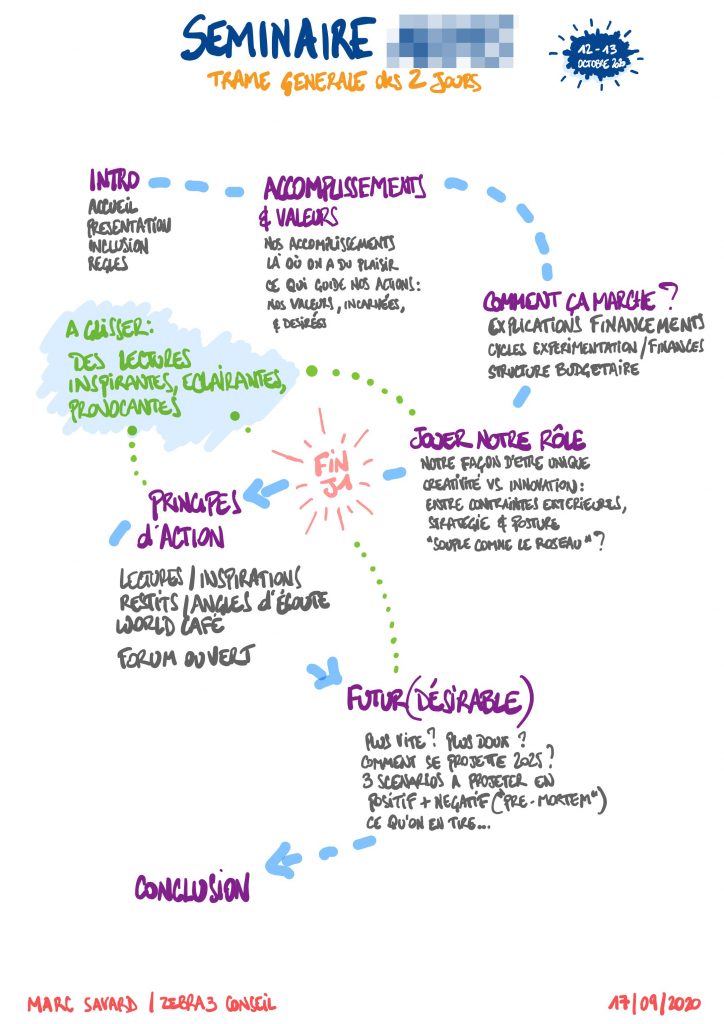 SEMINAIRE
TRAME GENERALE des 2 JOURS
12-13
OCTOBRE 2020
INTRO
ACCUEIL
PRESENTATION
INCLUSION
REGLES
ACCOMPLISSEMENTS
& VALEURS
NOS ACCOMPLISSEMENTS
LÀ OÙ ON A DU PLAISIR
CE QUI GUIDE NOS ACTIONS:
NOS VALEURS, INCARNÉES,
& DESIRÉES
COMMENT ÇA MARCHE ?
EXPLICATIONS FINANCEMENTS
CYCLES EXPERIMENTATION/FINANCES
STRUCTURE BUDGETAIRE
A GLISSER:
DES LECTURES
INSPIRANTES, ECLAIRANTES,
PROVOCANTES
JOUER NOTRE RÔLE
NOTRE FAÇON D'ETRE UNIQUE
CREATIVITÉ VS. INNOVATION:
ENTRE CONTRAINTES EXTERIEURES,
STRATEGIE & POSTURE
"SOUPLE COMME LE ROSEAU" ?
FIN
J1
PRINCIPES
d'ACTION
LECTURES / INSPIRATIONS
RESTITS / ANGLES d'ÉCOUTE
WORLD CAFÉ
FORUM OUVERT
FUTUR (DÉSIRABLE)
PLUS VITE ? PLUS DOUX ?
COMMENT SE PROJETTE 2025 ?
3 SCENARIOS A PROJETER EN
POSITIF + NEGATIF ("PRE-MORTEM")
CE QU'ON EN TIRE...
CONCLUSION
MARC SAVARD / ZEBRA3 CONSEIL
17/09/2020